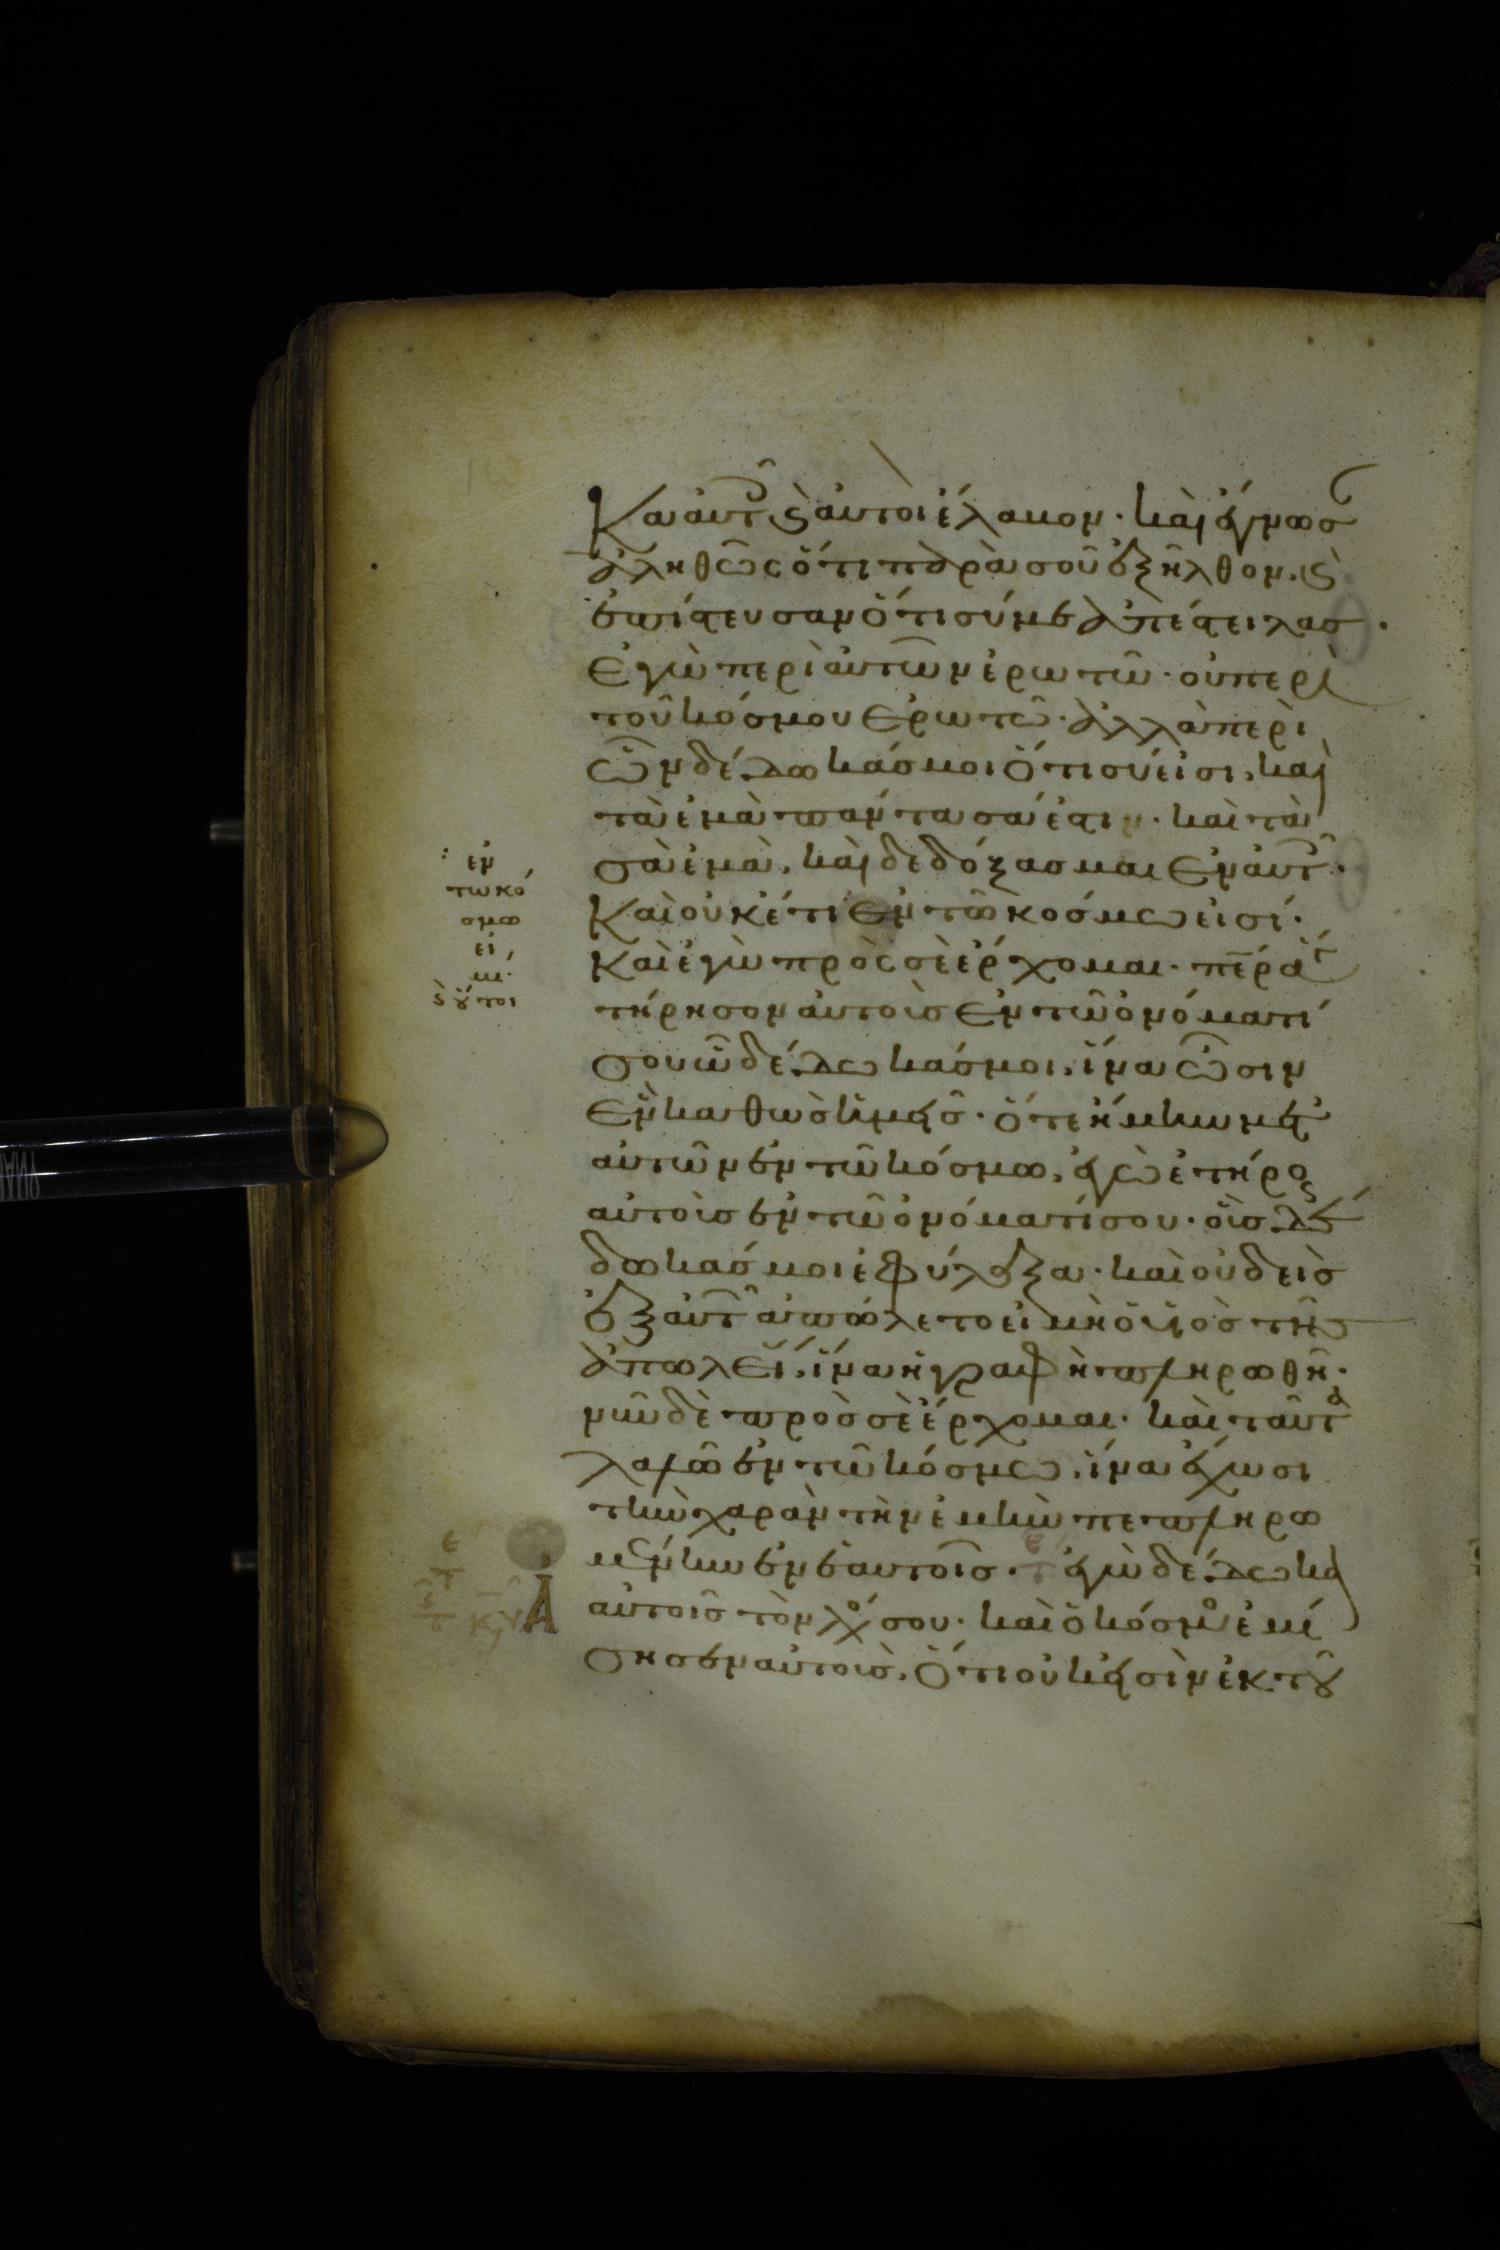 Κα αὐτ ϗ αὐτοὶ ἔλαβον· καὶ ἔγνωσ
ἀληθῶς ὅτι παρὰ σοῦ ἐξῆλθον, ϗ
ἐπίστευσαν ὅτι σύ με ἀπέστειλας·
Ἐγὼ περὶ αὐτῶν ἐρωτῶ· οὐ περὶ
τοῦ κόσμου ἐρωτῶ· ἀλλὰ περὶ
ὧν δέδωκάς μοι ὅτι σύ εἰσι, καὶ
τὰ ἐμὰ πάντα σά ἐστιν· καὶ τὰ
σὰ ἐμὰ, καὶ δεδόξασμαι ἐν αὐτ·
Καὶ οὐκέτι ἐν τῷ κόσμω εἰσί·
: ἐν
τω κό
σμω
εἰ
σι·
ϗ οὗτοι
καὶ ἐγὼ πρὸς σὲ ἔρχομαι· περ ἅγ
τήρησον αὐτοὺς ἐν τῷ ὀνόματί
σου ὧ δέδωκάς μοι, ἵνα ὦσιν
ἓν καθὼς ἡμεῖς· ὅτε ἤμην μετ
αὐτῶν ἐν τῷ κόσμω, ἐγὼ ἐτήρουν
αὐτοὺς ἐν τῷ ὀνόματί σου· οὓς δέ
δωκάς μοι ἐφύλαξα· καὶ οὐδεὶς
ἐξ αὐτ ἀπώλετο εἰ μὴ ὁ υἱὸς τῆς
ἀπωλεί, ἵνα ἡ γραφὴ πληρωθῆ·
νῦν δὲ πρὸς σὲ ἔρχομαι· καὶ ταῦτα
λαλῶ ἐν τῷ κόσμω, ἵνα ἔχωσι
τὴν χαρὰν τὴν ἐμὴν πεπληρω
μένην ἐν ἑαυτοῖς· ἐγὼ δέδωκα
αὐτοῖς τὸν λόγον σου· καὶ ὁ κόσμος ἐμί
σησεν αὐτοὺς, ὅτι οὐκ εἰσὶν ἐκ τοῦ